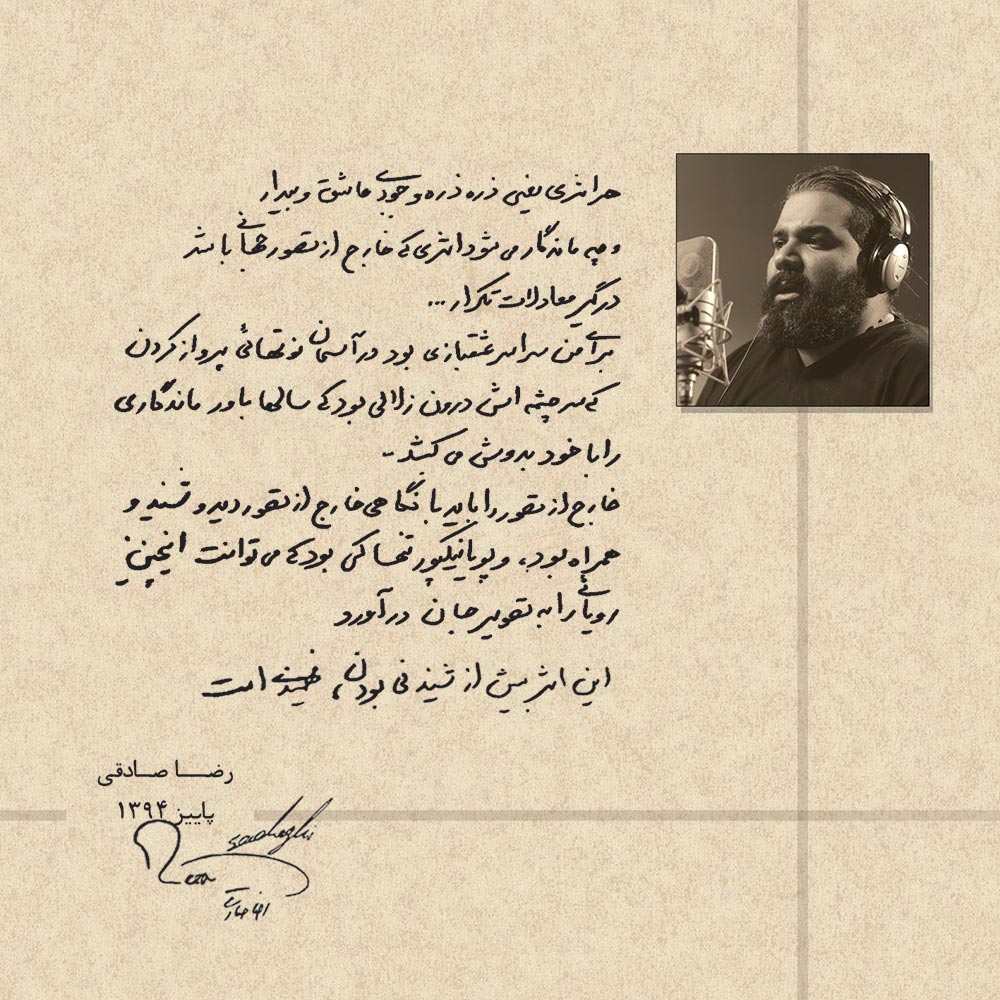 هر اثری یعنی ذره ذره وجودی عاشق و بیدار
و چه ماندگار می شود اثری که خارج از تصور جهانی باشد
درگیر معادلات تکرار ...
برای من سراسر عشقبازی بود در آسمان نوتهائی پرواز کردن
که سرچشمه اش درون زلالی بود که سالها باور ماندگاری
را با خود بدوش می کشد
خارج از تصور را باید با نگاهی خارج از تصور دید و شنید و
همراه بود، و پویا نیکپور تنها کسی بود که می توانست اینچنین
رویائی را به تصویر جان درآورد
این اثر بیش از شنیدنی بودن، فهمیدنی است
رضا صادقی
پاییز ۱۳۹۴
Reza
sadeghi
رضا صادقی